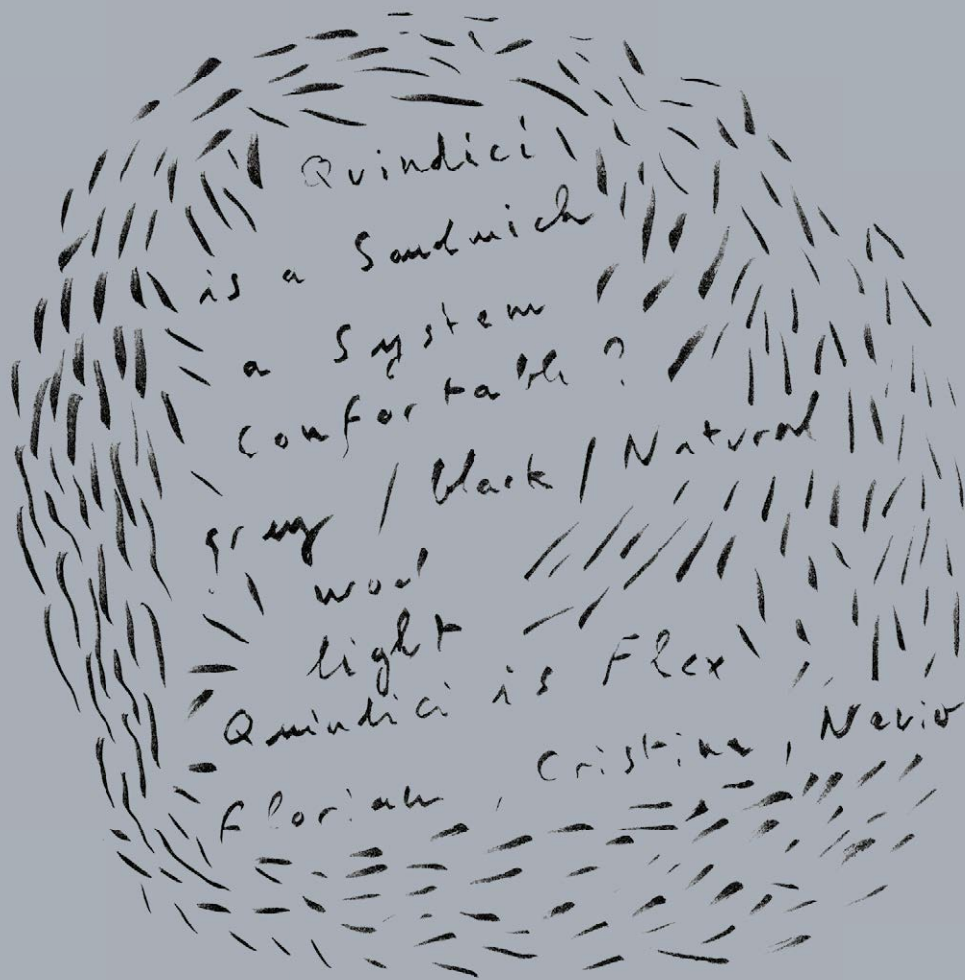 Quindici
is a Sandwich
a System
Comfortable?
grey / black / Natural
wod
light
Quindici is Flex
Florian, Cristina, Nevio